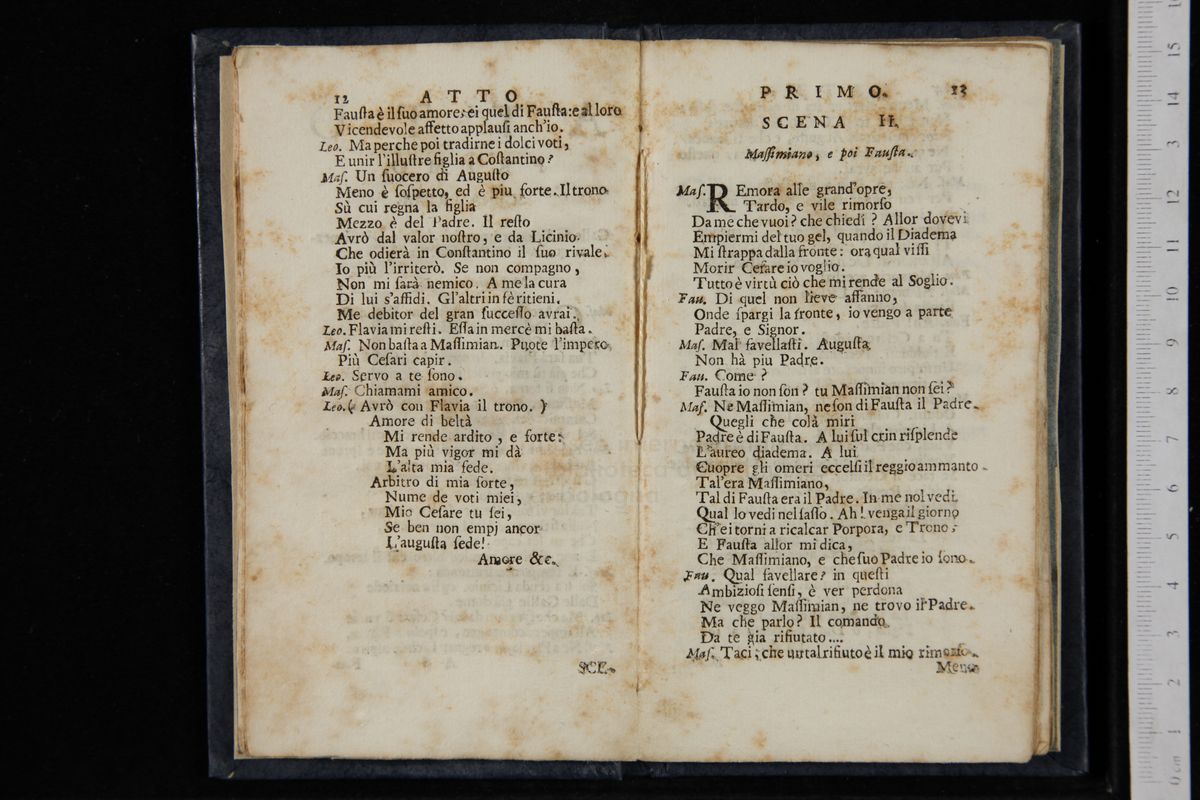 12 ATTO
Fauſta è il ſuo amore: ei quel di Fauſta: e al loro
Vicendevole affetto applauſi anch'io.
Leo. Ma perche poi tradirne i dolci voti,
E unir l'illuſtre figlia a Coſtantino?
Maſ. Un ſuocero di Auguſto
Meno è ſoſpetto, ed è piu forte. Il trono
Sù cui regna la figlia
Mezzo è del Padre. Il reſto
Avrò dal valor noſtro, e da Licinio.
Che odierà in Conſtantino il ſuo rivale.
Io più l'irriterò. Se non compagno,
Non mi ſarà nemico. A me la cura
Di lui s'affidi. Gl'altri in fè ritieni.
Me debitor del gran ſucceſſo avrai.
Leo. Flavia mi reſti. Eſſa in mercè mi baſta.
Maſ. Non baſta a Maſſimian. Puote l'impero
Più Ceſari capir.
Leo. Servo a te ſono.
Maſ. Chiamami amico.
Leo. ( Avrò con Flavia il trono. )
Amore di beltà
Mi rende ardito, e forte:
Ma più vigor mi dà
L'alta mia fede.
Arbitro di mia ſorte,
Nume de voti miei,
Mio Ceſare tu ſei,
Se ben non empj ancor
L'auguſta ſede!
Amore &c.
SCE-
PRIMO. 13
SCENA II.
Maſſimiano, e poi Fauſta.
Maſ. REmora alle grand'opre,
Tardo, e vile rimorſo
Da me che vuoi? che chiedi? Allor dovevi
Empiermi del tuo gel, quando il Diadema
Mi ſtrappa dalla fronte: ora qual viſſi
Morir Ceſare io voglio.
Tutto è virtù ciò che mi rende al Soglio.
Fau. Di quel non lieve affanno,
Onde ſpargi la fronte, io vengo a parte
Padre, e Signor.
Maſ. Mal favellaſti. Auguſta
Non hà piu Padre.
Fau. Come?
Fauſta io non ſon? tu Maſſimian non ſei?
Maſ. Ne Maſſimian, ne ſon di Fauſta il Padre.
Quegli che colà miri
Padre è di Fauſta. A lui ſul crin riſplende
L'aureo diadema. A lui
Cuopre gli omeri eccelſi il reggio ammanto.
Tal'era Maſſimiano,
Tal di Fauſta era il Padre. In me nol vedi.
Qual lo vedi nel ſaſſo. Ah! venga il giorno
Ch'ei torni a ricalcar Porpora, e Trono:
E Fauſta allor mi dica,
Che Maſſimiano, e che ſuo Padre io ſono.
Fau. Qual favellare? in queſti
Ambizioſi ſenſi, è ver perdona
Ne veggo Maſſimian, ne trovo il Padre.
Ma che parlo? Il comando
Da te gia rifiutato....
Maſ. Taci; che un tal rifiuto è il mio rimorſo.
Meno